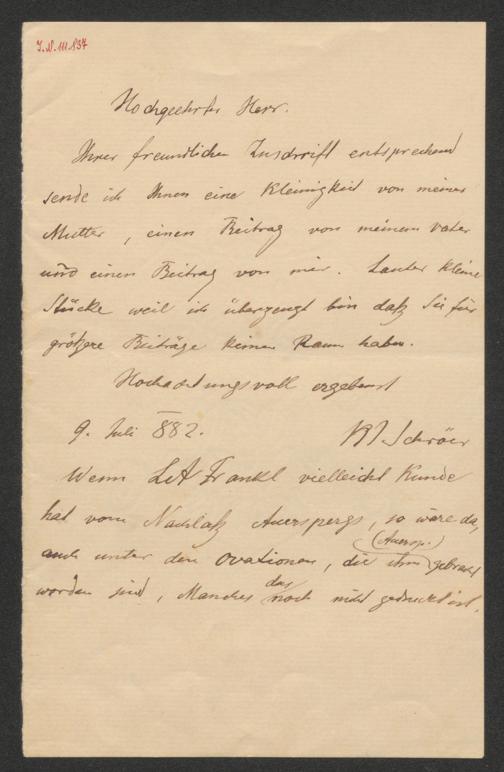 J.N. 111.837
Hochgeehrter Herr.
Ihrer freundlichen Zuschrift entsprechend
sende ich Ihnen eine Kleinigkeit von meiner
Mutter, einen Beitrag von meinem Vater
und einen Beitrag von mir. Lauter kleine
Stücke weil ich überzeugt bin daß Sie für
größere Beiträge keinen Raum haben.
Hochachtungsvoll ergebenst
9. Juli 882.
KJSchröer
Wenn LAFrankl vielleicht Kunde
hat vom Nachlaß Auerspergs, so wäre da,
(Auersp.)
auch unter den Ovationen, die ihm gebracht
worden sind, Manches das noch nicht gedruckt ist.